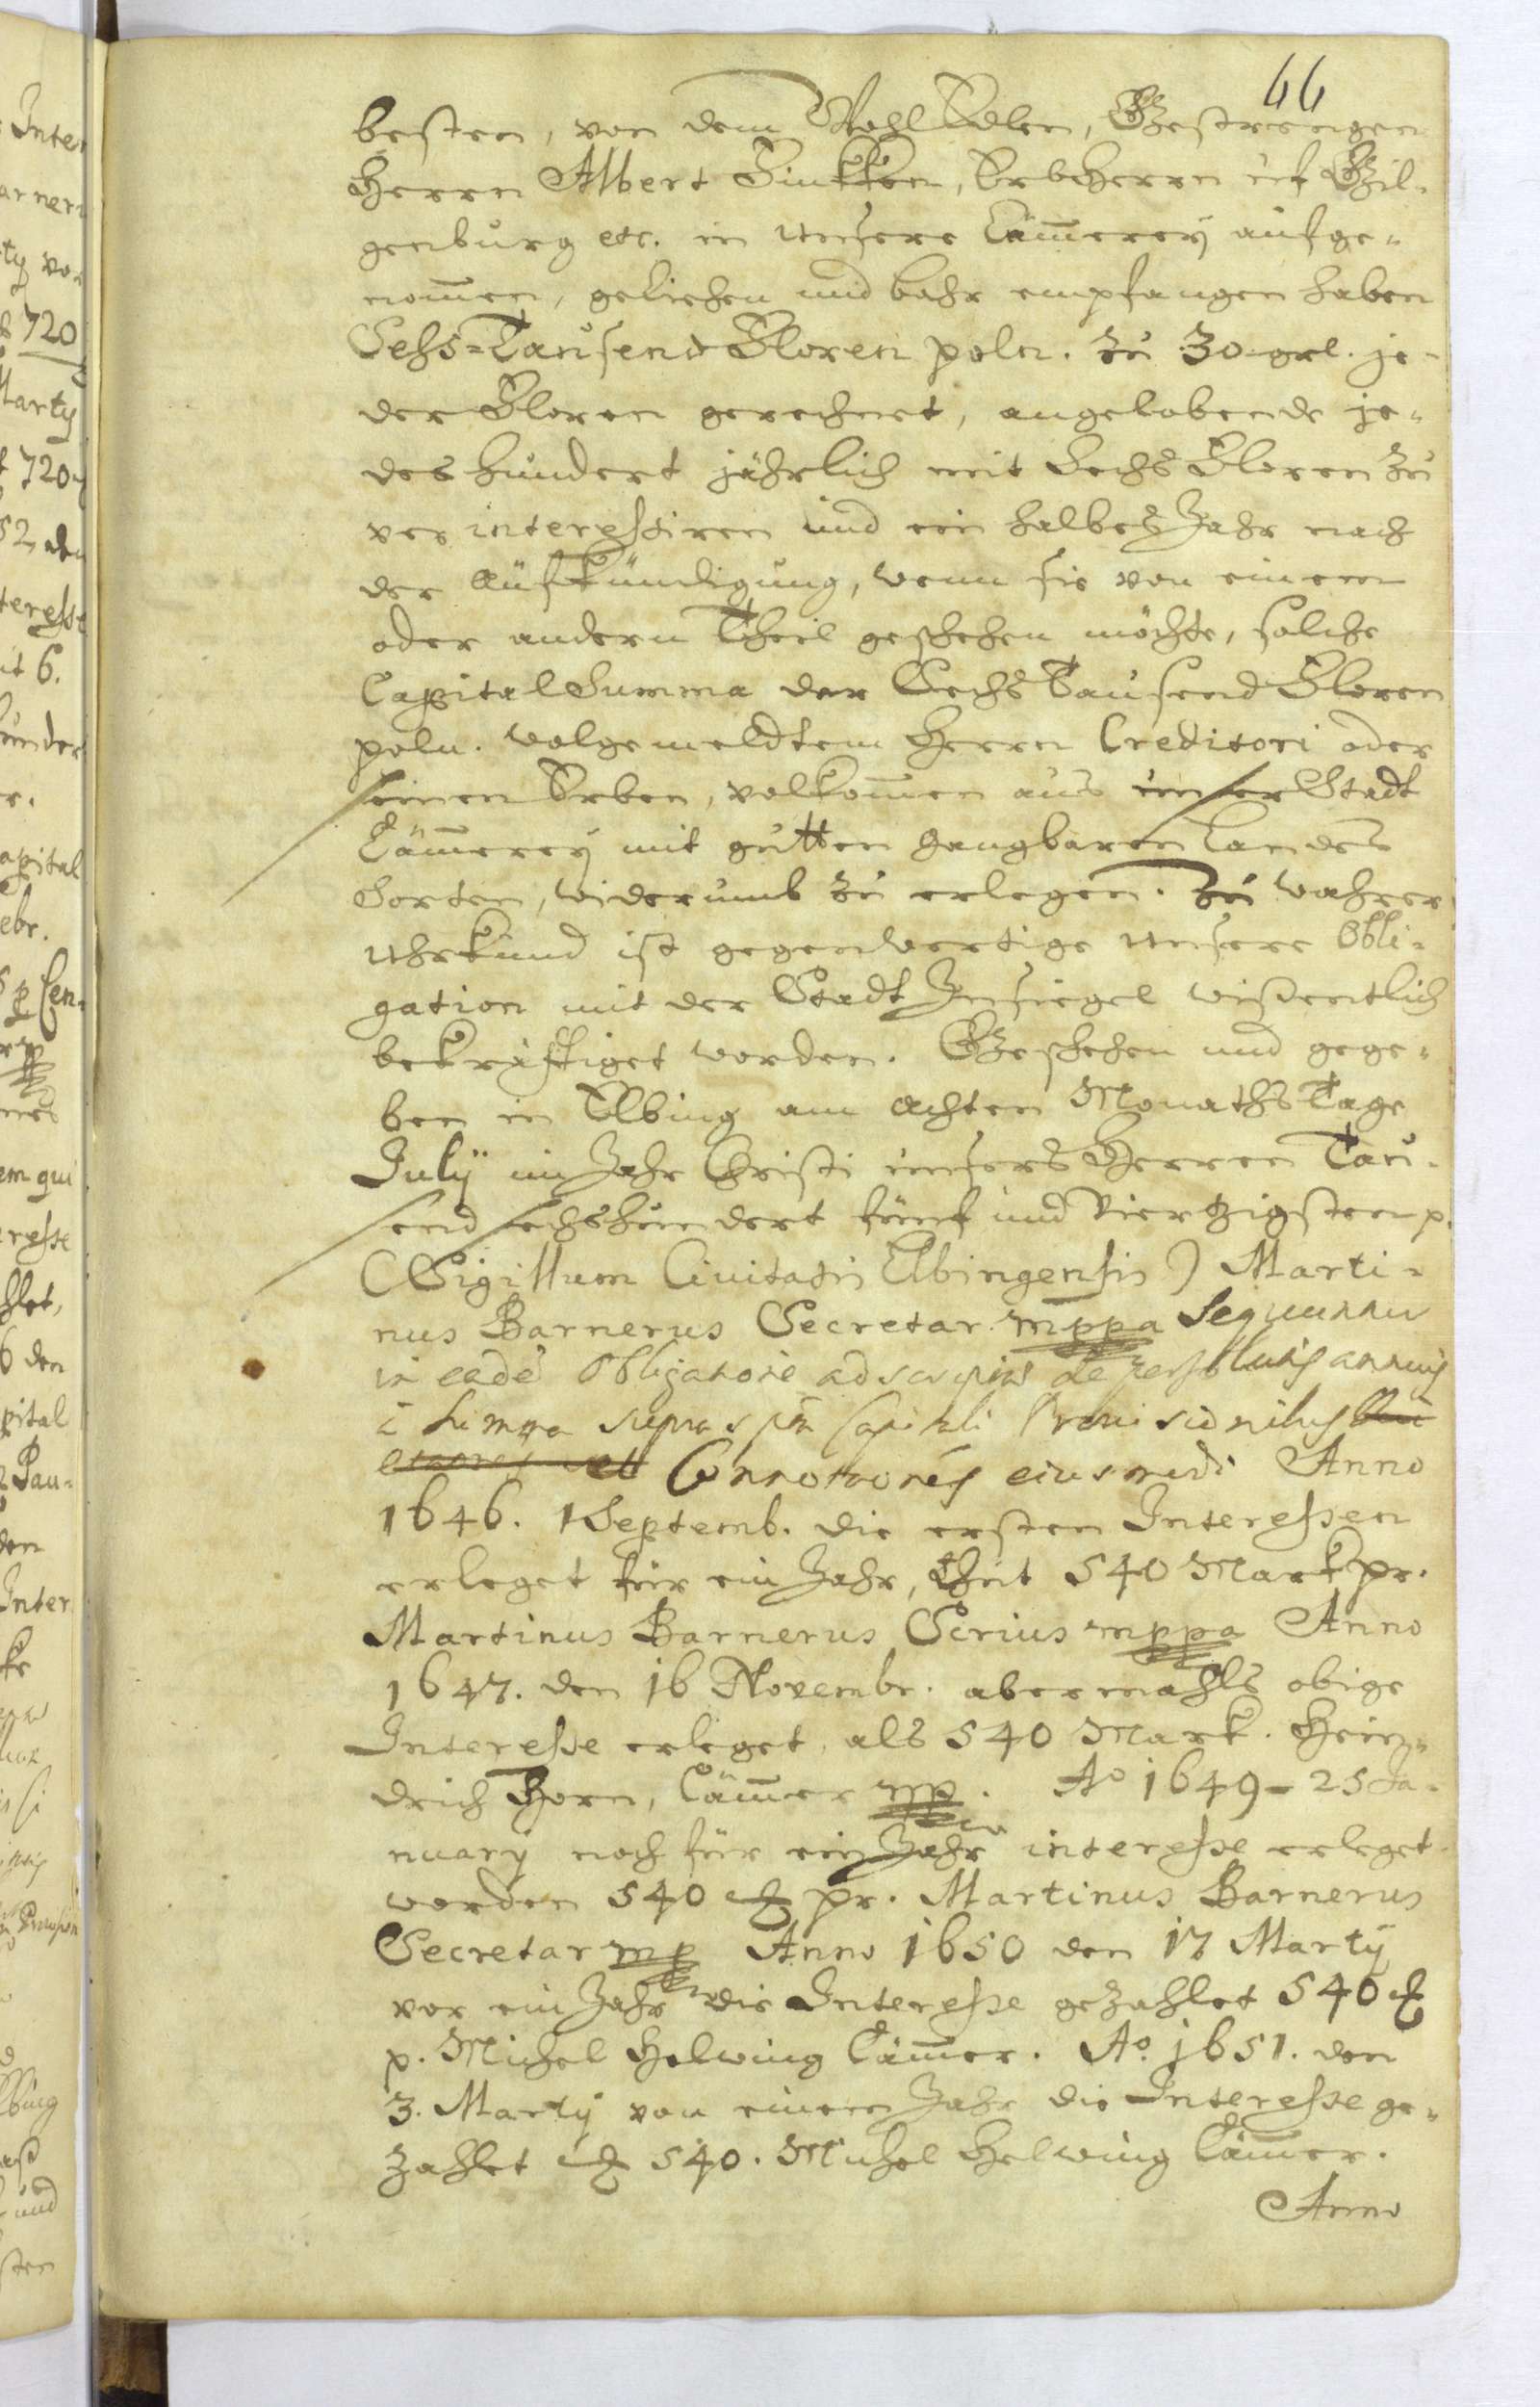 66
besten, von dem Wohl Edlen, Gestrengen
Herren Albert Fincken, Erbherren uf Gil-
genburg etc. in unsere Cämerey aufge-
nom̄en, geliehen und bahr empfangen haben
Sechs-Tausend Floren poln. zu 30 grl. je-
der Floren gerechnet, angelobende je-
des hundert jährlich mit Sechs Floren zu
ver interessiren und ein halbes Jahr nach
der Aufkündigung, wenn sie von einem
oder andern Theil geschehen möchte, solche
Capital Summa der Sechs Tausend Floren
poln. wolgemeldtem Herren Creditori oder
seinen Erben, volkom̄en aus unser Stadt
Cäm̄erey mit gutten gangbaren Landes
Sorten, widerumb zu erlegen. Zu wahrer
Uhrkund ist gegenwertige unsere Obli-
gation mit der Stadt Insiegel wißentlich
bekräfftiget worden. Geschehen und gege-
ben in Elbing am achten Monaths Tage
July im Jahr Christi unsers Herren Tau-
send sechshundert fünf und Viertzigsten p.
(Sigillum Civitatis Elbingensis) Marti-
nus Barnerus Secretar. mppa Sequuntur
in eadē Obligatione adscriptae de persolutis annuis
Summa supra capitali Provisionibus
Connotationes eiusmodi Anno
1646. 1 Septemb. die ersten Interessen
erleget für ein Jahr, thut 540 Mark pr.
Martinus Barnerus Scrius mppa Anno
1647. den 16 Novembr. abermahls obige
Interesse erleget, als 540 Mark. Hein-
drich Horn, Cäm̄er mp. Ao 1649 - 25 Ja-
nuary noch für ein Jahr interesse erleget
worden 540 ℳ pr. Martinus Barnerus
Secretar mp Anno 1650 den 17 Marty
vor ein Jahr die Interesse gezahlet 540 ℳ
p. Michel Helwing Cäm̄er. Ao. 1651. den
3. Marty von einem Jahr die Interesse ge-
zahlet ℳ 540. Michel Helwing Cäm̄er.
Anno